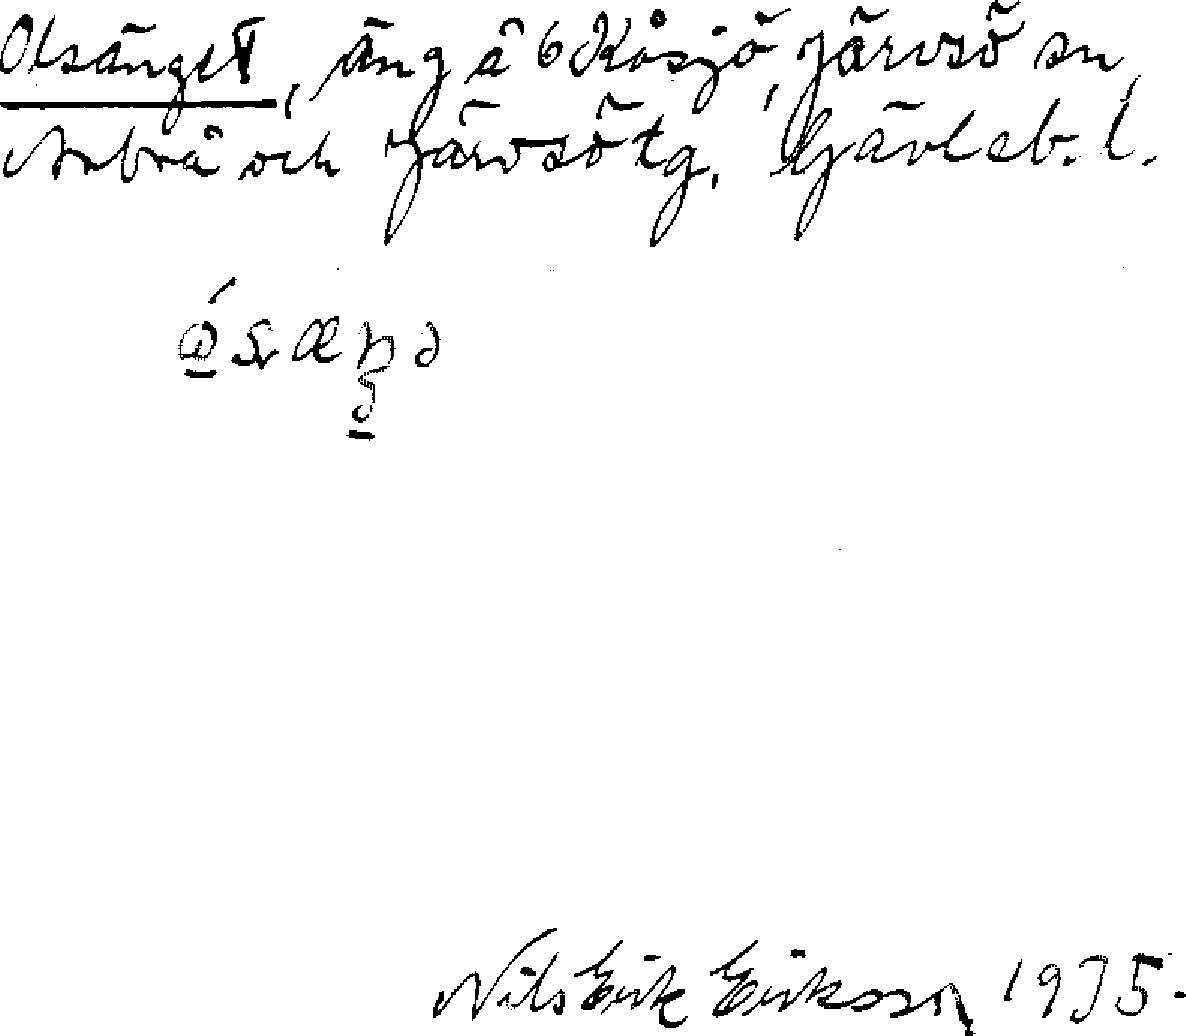 Olsänget, äng å 6 Kåsjö, Järvsö sn,
Arbrå och Järvsö tg. Gävleb. l.
Nils Erik Eriksson 1935.